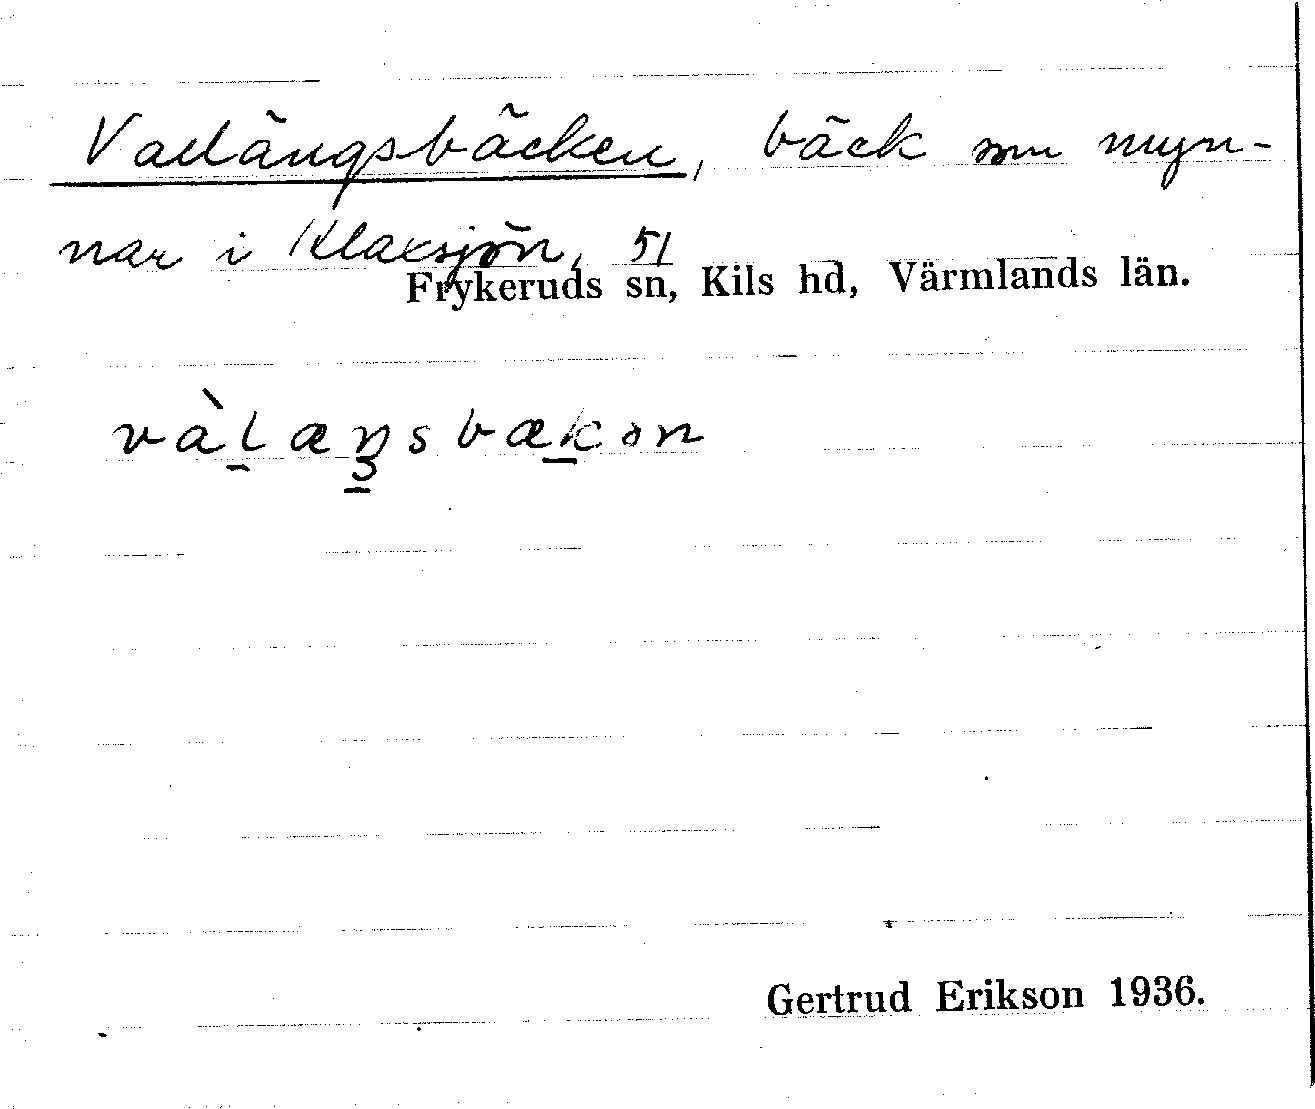 Vallängsbäcken, bäck som myn-
nar i Klaxsjön, 51
Frykeruds sn, Kils hd, Värmlands län.
vàlæŋsbækən
Gertrud Erikson 1936.